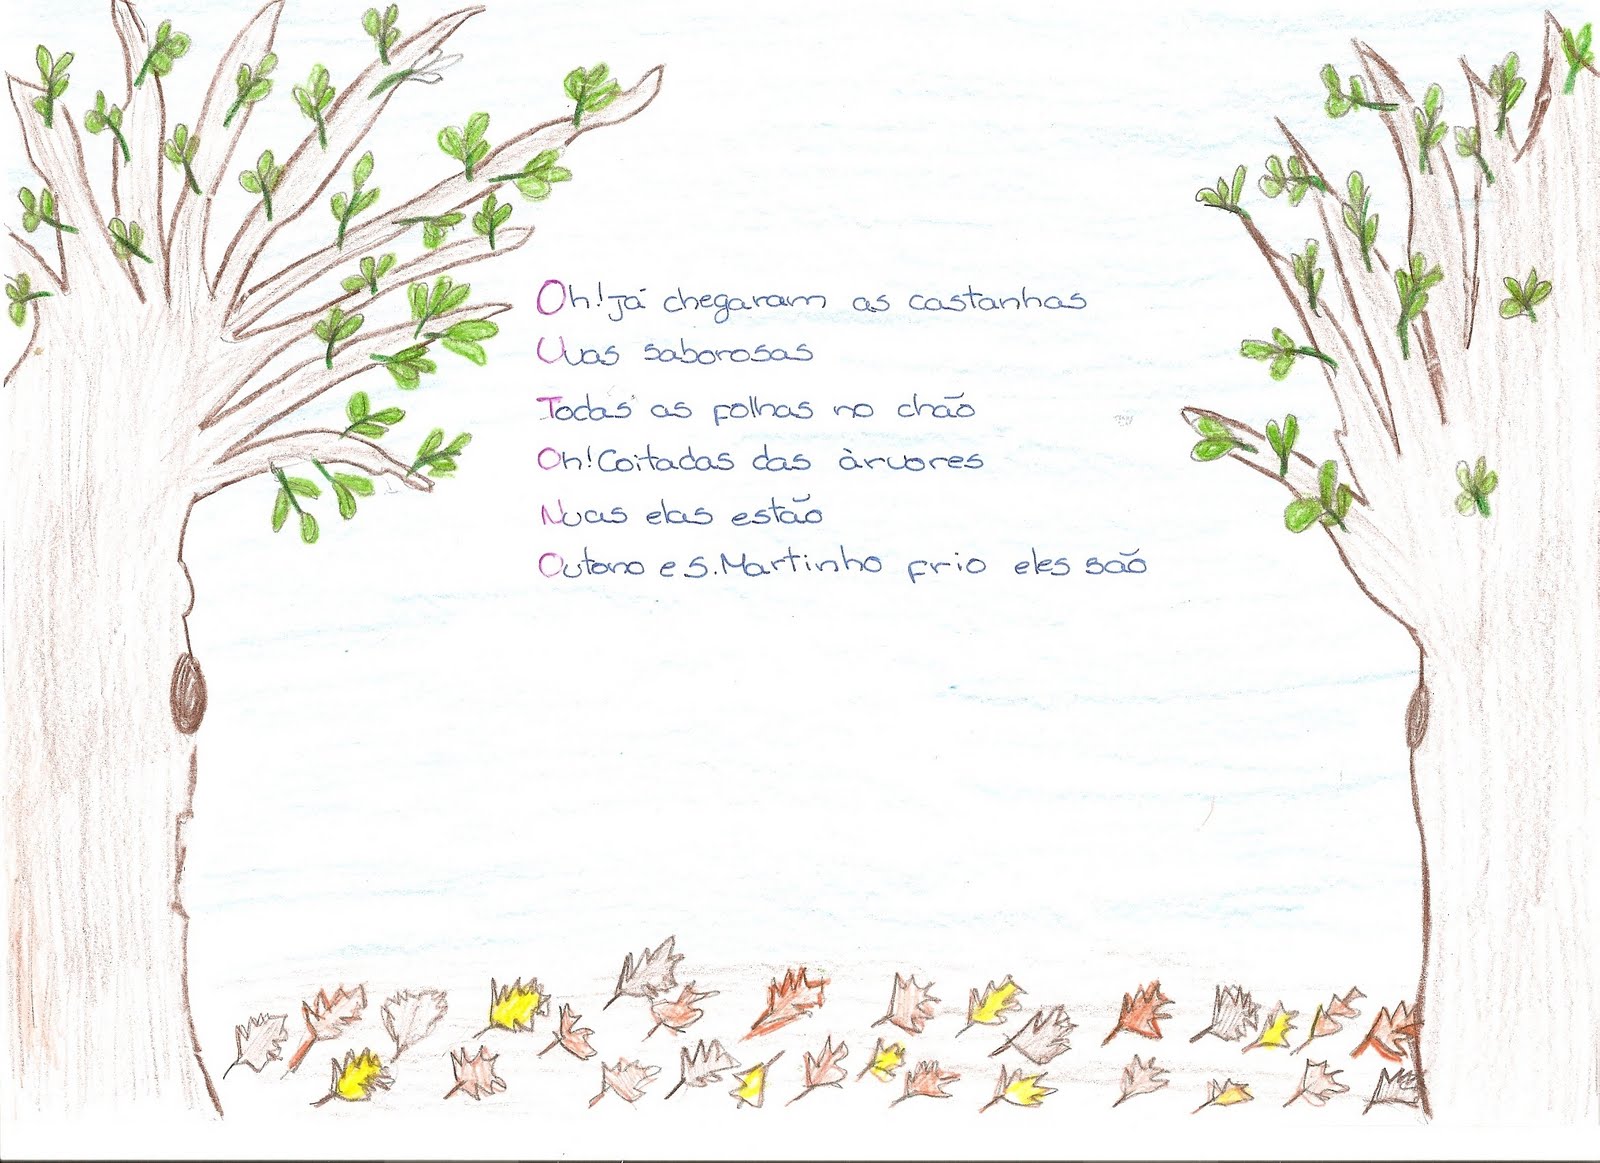 Oh! já chegaram as castanhas
Uvas saborosas
Todas as folhas no chão
Oh! Coitadas das àrvores
Nuas elas estão
Outono e S. Martinho frio eles são